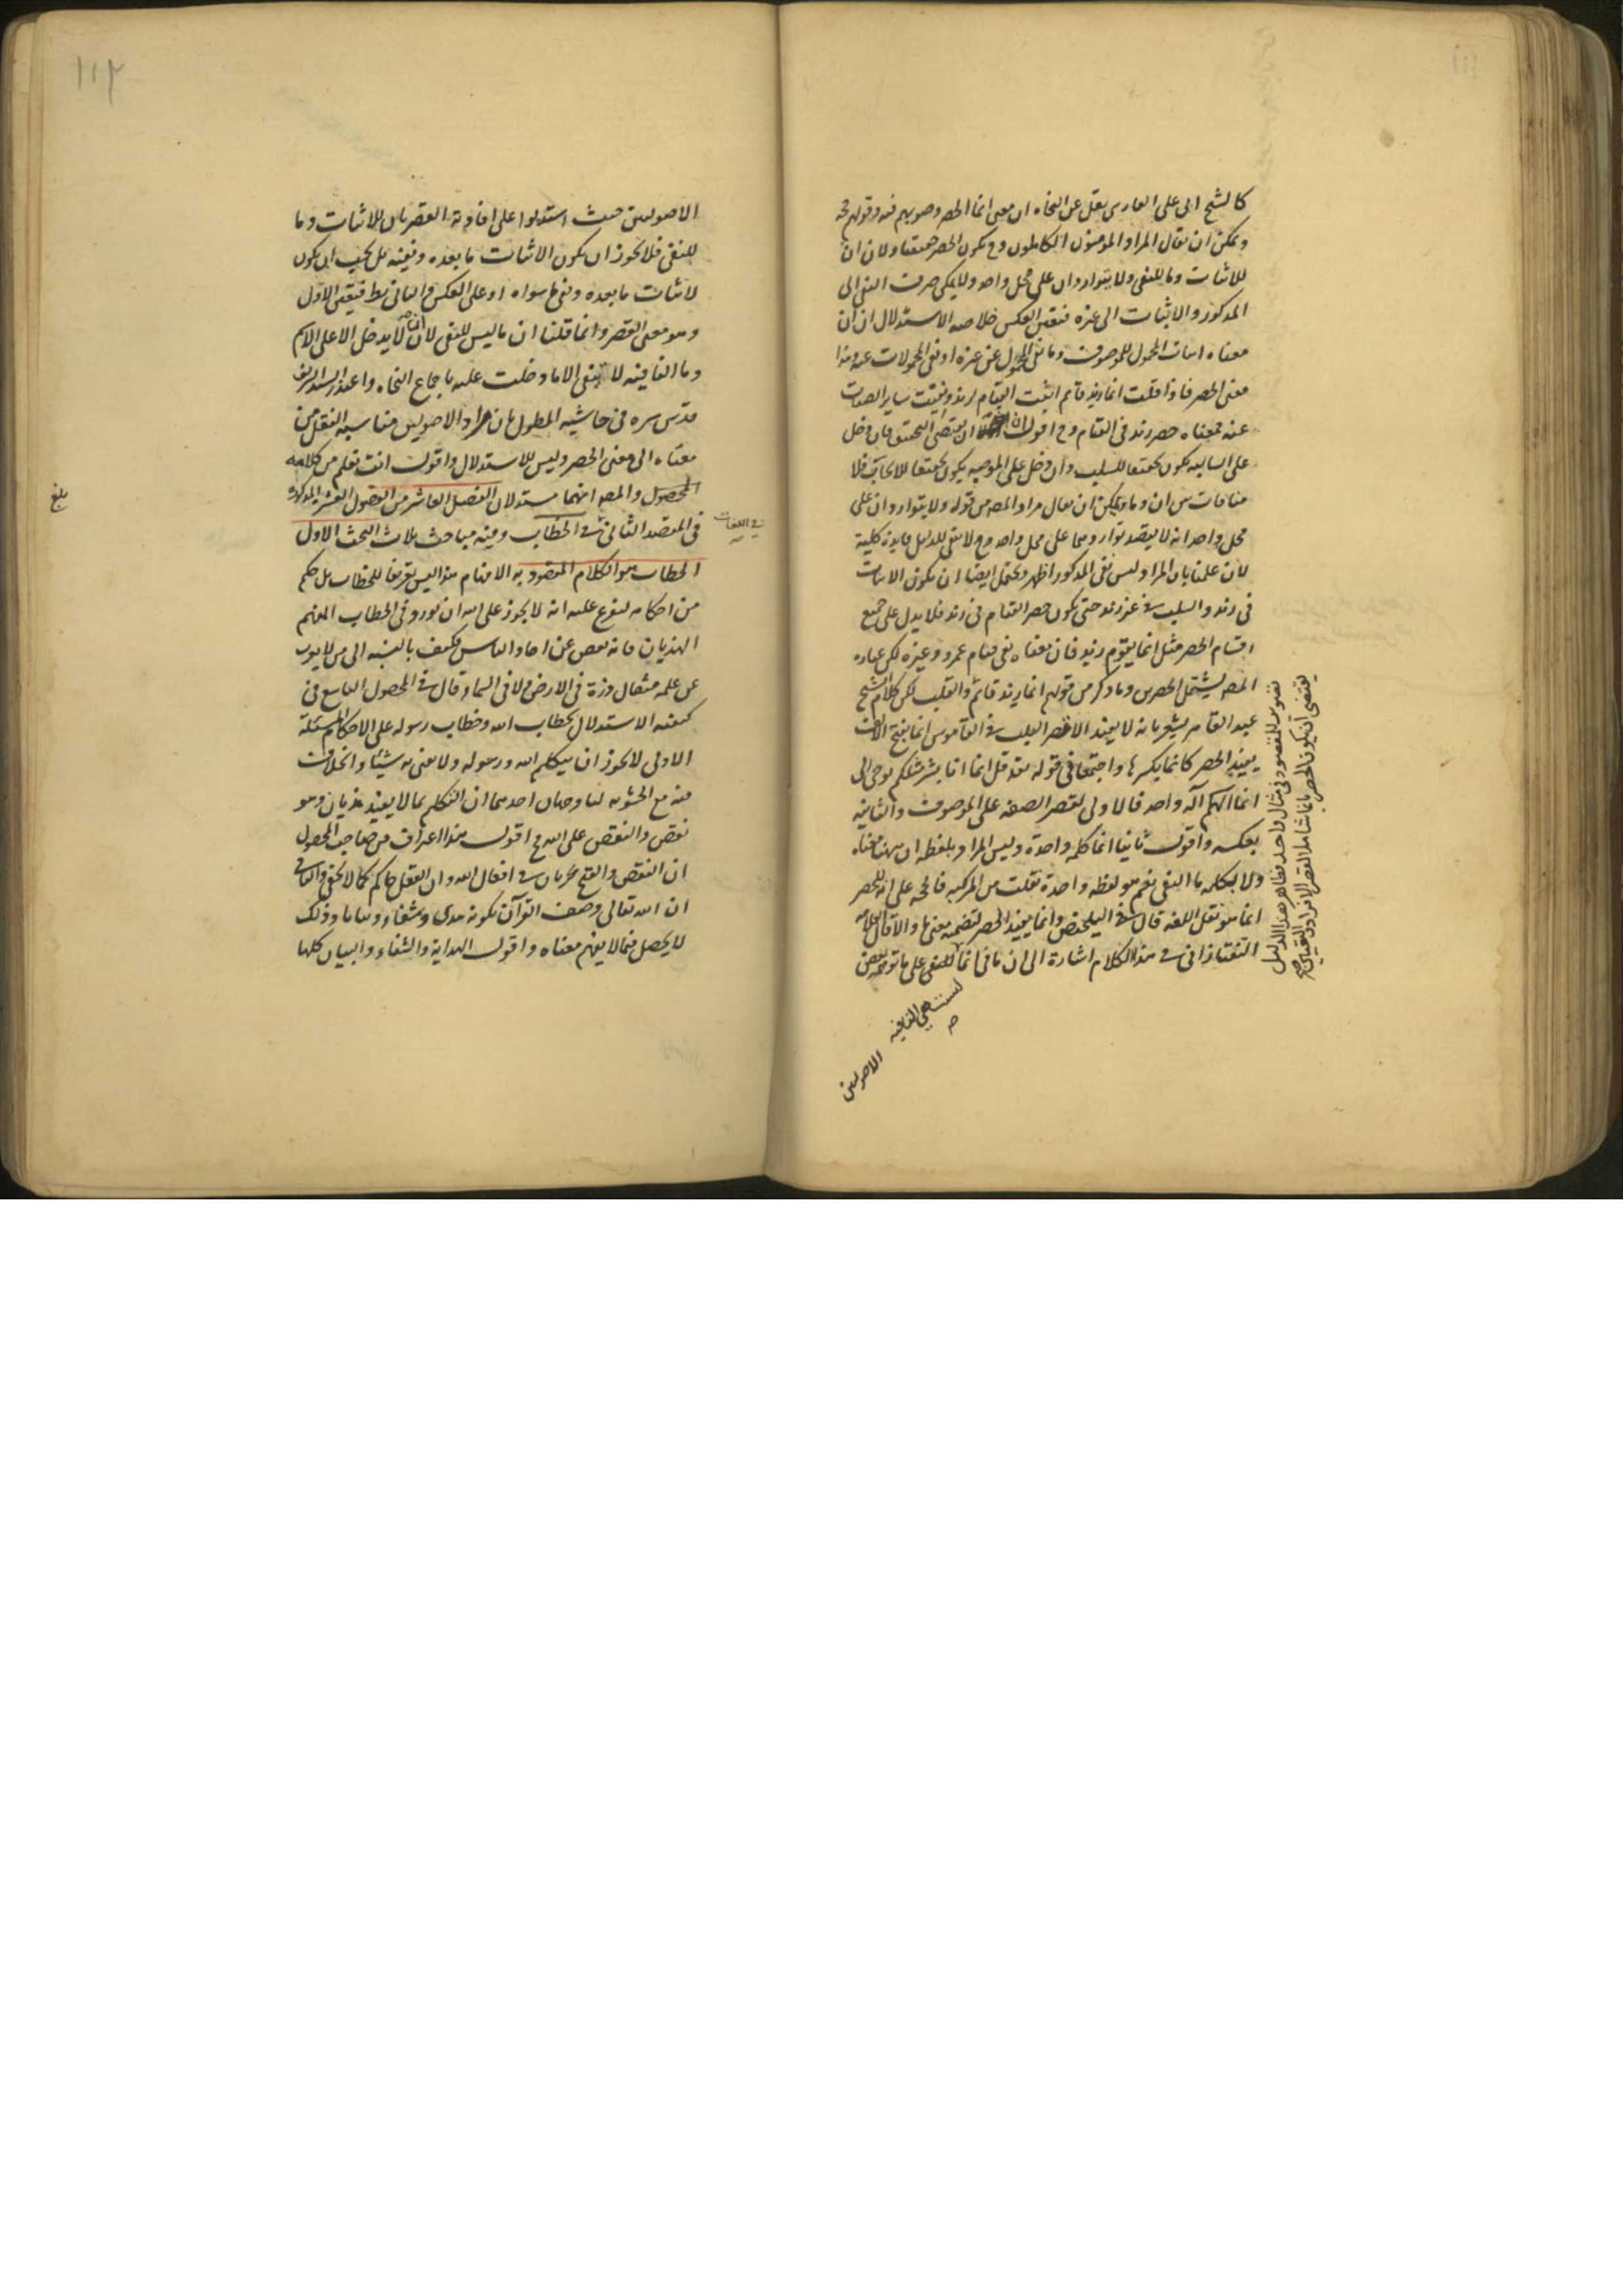 كالشيخ ابى على الفارسى نقل عن النحاه ان معنى انما الحصر وصوبهم فيه وقولهم حجة
ويمكن ان يقال المراد المؤمنون الكاملون وح يكون الحصر حقيقيا ولان ان
للاثبات وما للنفى ولا يتواردان على محل واحد ولا يمكن صرف النفى الى
المذكور والاثبات الى غيره فتعين العكس خلاصه الاستدلال ان ان
معناه اثبات المحمول للموصوف وما نفى المحمول عن غيره او نفى المحمولات عنه وهذا
معنى الحصر فاذا قلت انما زيد قائم اثبت القيام لزيد ونفيت ساير الصفات
عنه فمعناه حصر زيد فى القيام وح اقول ان يقتضى التحقق فان دخل
على السالبه يكون تحقيقا للسلب وان دخل على الموجبه يكون تحقيقا للايجاب فلا
منافات بين ان وما ويمكن ان يقال مراد المص من قوله ولا يتواردان على
محل واحد انه لا يقصد تواردهما على محل واحد وح لا يبقى للدليل فايدة كلية
لان علمنا بان المراد ليس نفى المذكور اظهر ويحتمل ايضا ان يكون الاثبات
فى زيد والسلب فى غير زيد حتى يكون حصر القيام فى زيد فلا يدل على جميع
اقسام الحصر مثل انما يقوم زيد فان معناه نفى قيام عمرو وغيره لكن عباره
المص يشتمل الحصرين وما ذكر من قولهم انما زيد قائم والقلب لكن كلام الشيخ
عبد القاهر يشعر بانه لا يفيد الا قصر القلب فى القاموس انما بفتح الالف
يفيد الحصر كانما بكسرها واجتمعا فى قوله تعه قل انما انا بشر مثلكم يوحى الى
انما الهكم اله واحد فالاولى لقصر الصفه على الموصوف والثانيه
بعكسه واقول ثانيا انما كلمه واحدة وليس المراد بلفظه ان ههنا معناه
ولا بكلمه ما النفى نعم هو لفظه واحدة نقلت من المركبه فالحجه على انه للحصر
انما هو نقل اللغه قال فى التلخيص وانما يفيد الحصر لتضمنه معنى ما والا قال العلامه
التفتازانى فى هذا الكلام اشارة الى ان ما فى انما للنفى على ما توهمه بعض
ليست هى النافيه
ص
الاصوليين
تصوير للمقصود فى مثال واحد فظاهر هذا الدليل
يقتضى ان يكون الحصر بانما شاملا لقصر الافراد والتعيين
١١٢
الاصوليين حيث استدلوا على افادته القصر بان ان للاثبات وما
للنفى فلا يجوز ان يكون الاثبات ما بعده ونفيه بل يجب ان يكون
لاثبات ما بعده ونفى ما سواه او على العكس والثانى بط فتعين الاول
وهو معنى القصر وانما قلنا ان ما ليس للنفى لان ان لا يدخل الا على الاسم
وما النافيه لا ينفى الا ما دخلت عليه باجماع النحاه واعتذر السيد الشريف
قدس سره فى حاشيه المطول بان مراد الاصوليين مناسبه النقل من
معناه الى معنى الحصر وليس للاستدلال واقول انت تعلم من كلامه
المحصول والمص انهما مستدلان الفصل العاشر من الفصول العشر المذكورة
فى المقصد الثانى فى الخطاب وفيه مباحث ثلاث البحث الاول
فى اللغات
بلغ
الخطاب هو الكلام المقصود به الافهام هذا ليس تعريفا للخطاب بل حكم
من احكامه ليفرع عليه انه لا يجوز على الله ان يورد فى الخطاب المفهم
الهذيان فانه نقص عن احاد الناس فكيف بالنسبه الى من لا يعزب
عن علمه مثقال ذرة فى الارض ولا فى السماء وقال فى المحصول التاسع فى
كيفيه الاستدلال بخطاب الله وخطاب رسوله على الاحكام المسئلة
الاولى لا يجوز ان يتكلم الله ورسوله ولا يعنى به شيئا والخلاف
فيه مع الحشويه لنا وجهان احدهما ان التكلم بما لا يفيد هذيان وهو
نقص والنقص على الله مح اقول هذا اعتراف من صاحب المحصول
ان النقص والقبح يجريان فى افعال الله وان العقل حاكم كما لا يخفى والثانى
ان الله تعالى وصف القرآن بكونه هدى وشفاء وبيانا وذلك
لا يحصل فيما لا يفهم معناه واقول الهداية والشفاء والبيان كلها